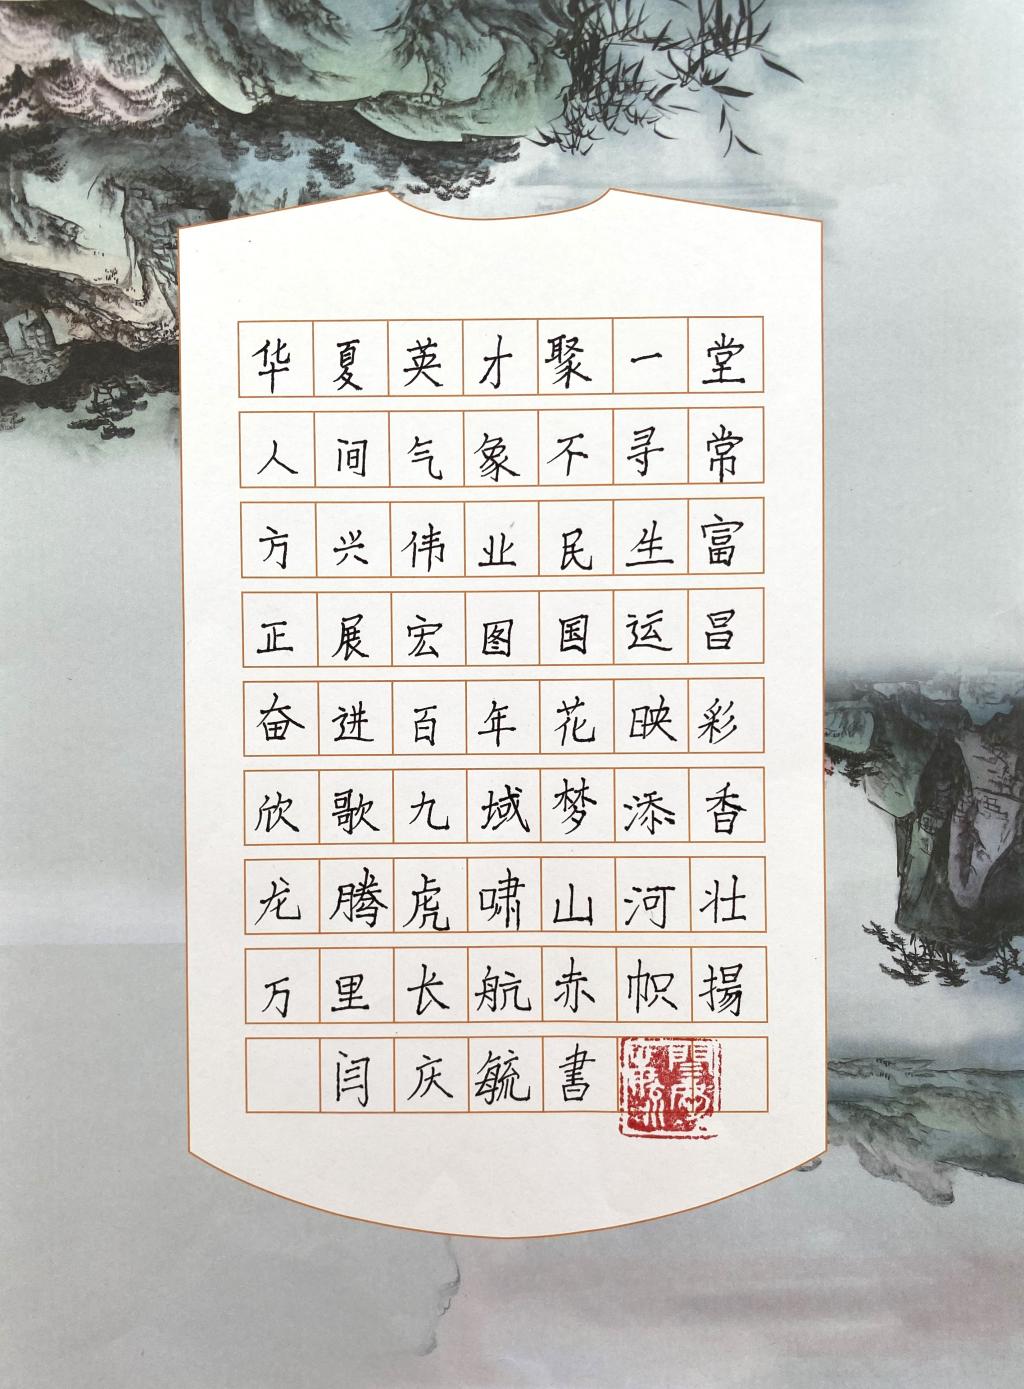 华夏英才聚一堂
人间气象不寻常
方兴伟业民生富
正展宏图国运昌
奋进百年花映彩
欣歌九域梦添香
龙腾虎啸山河壮
万里长航赤帜揚
闫庆毓书